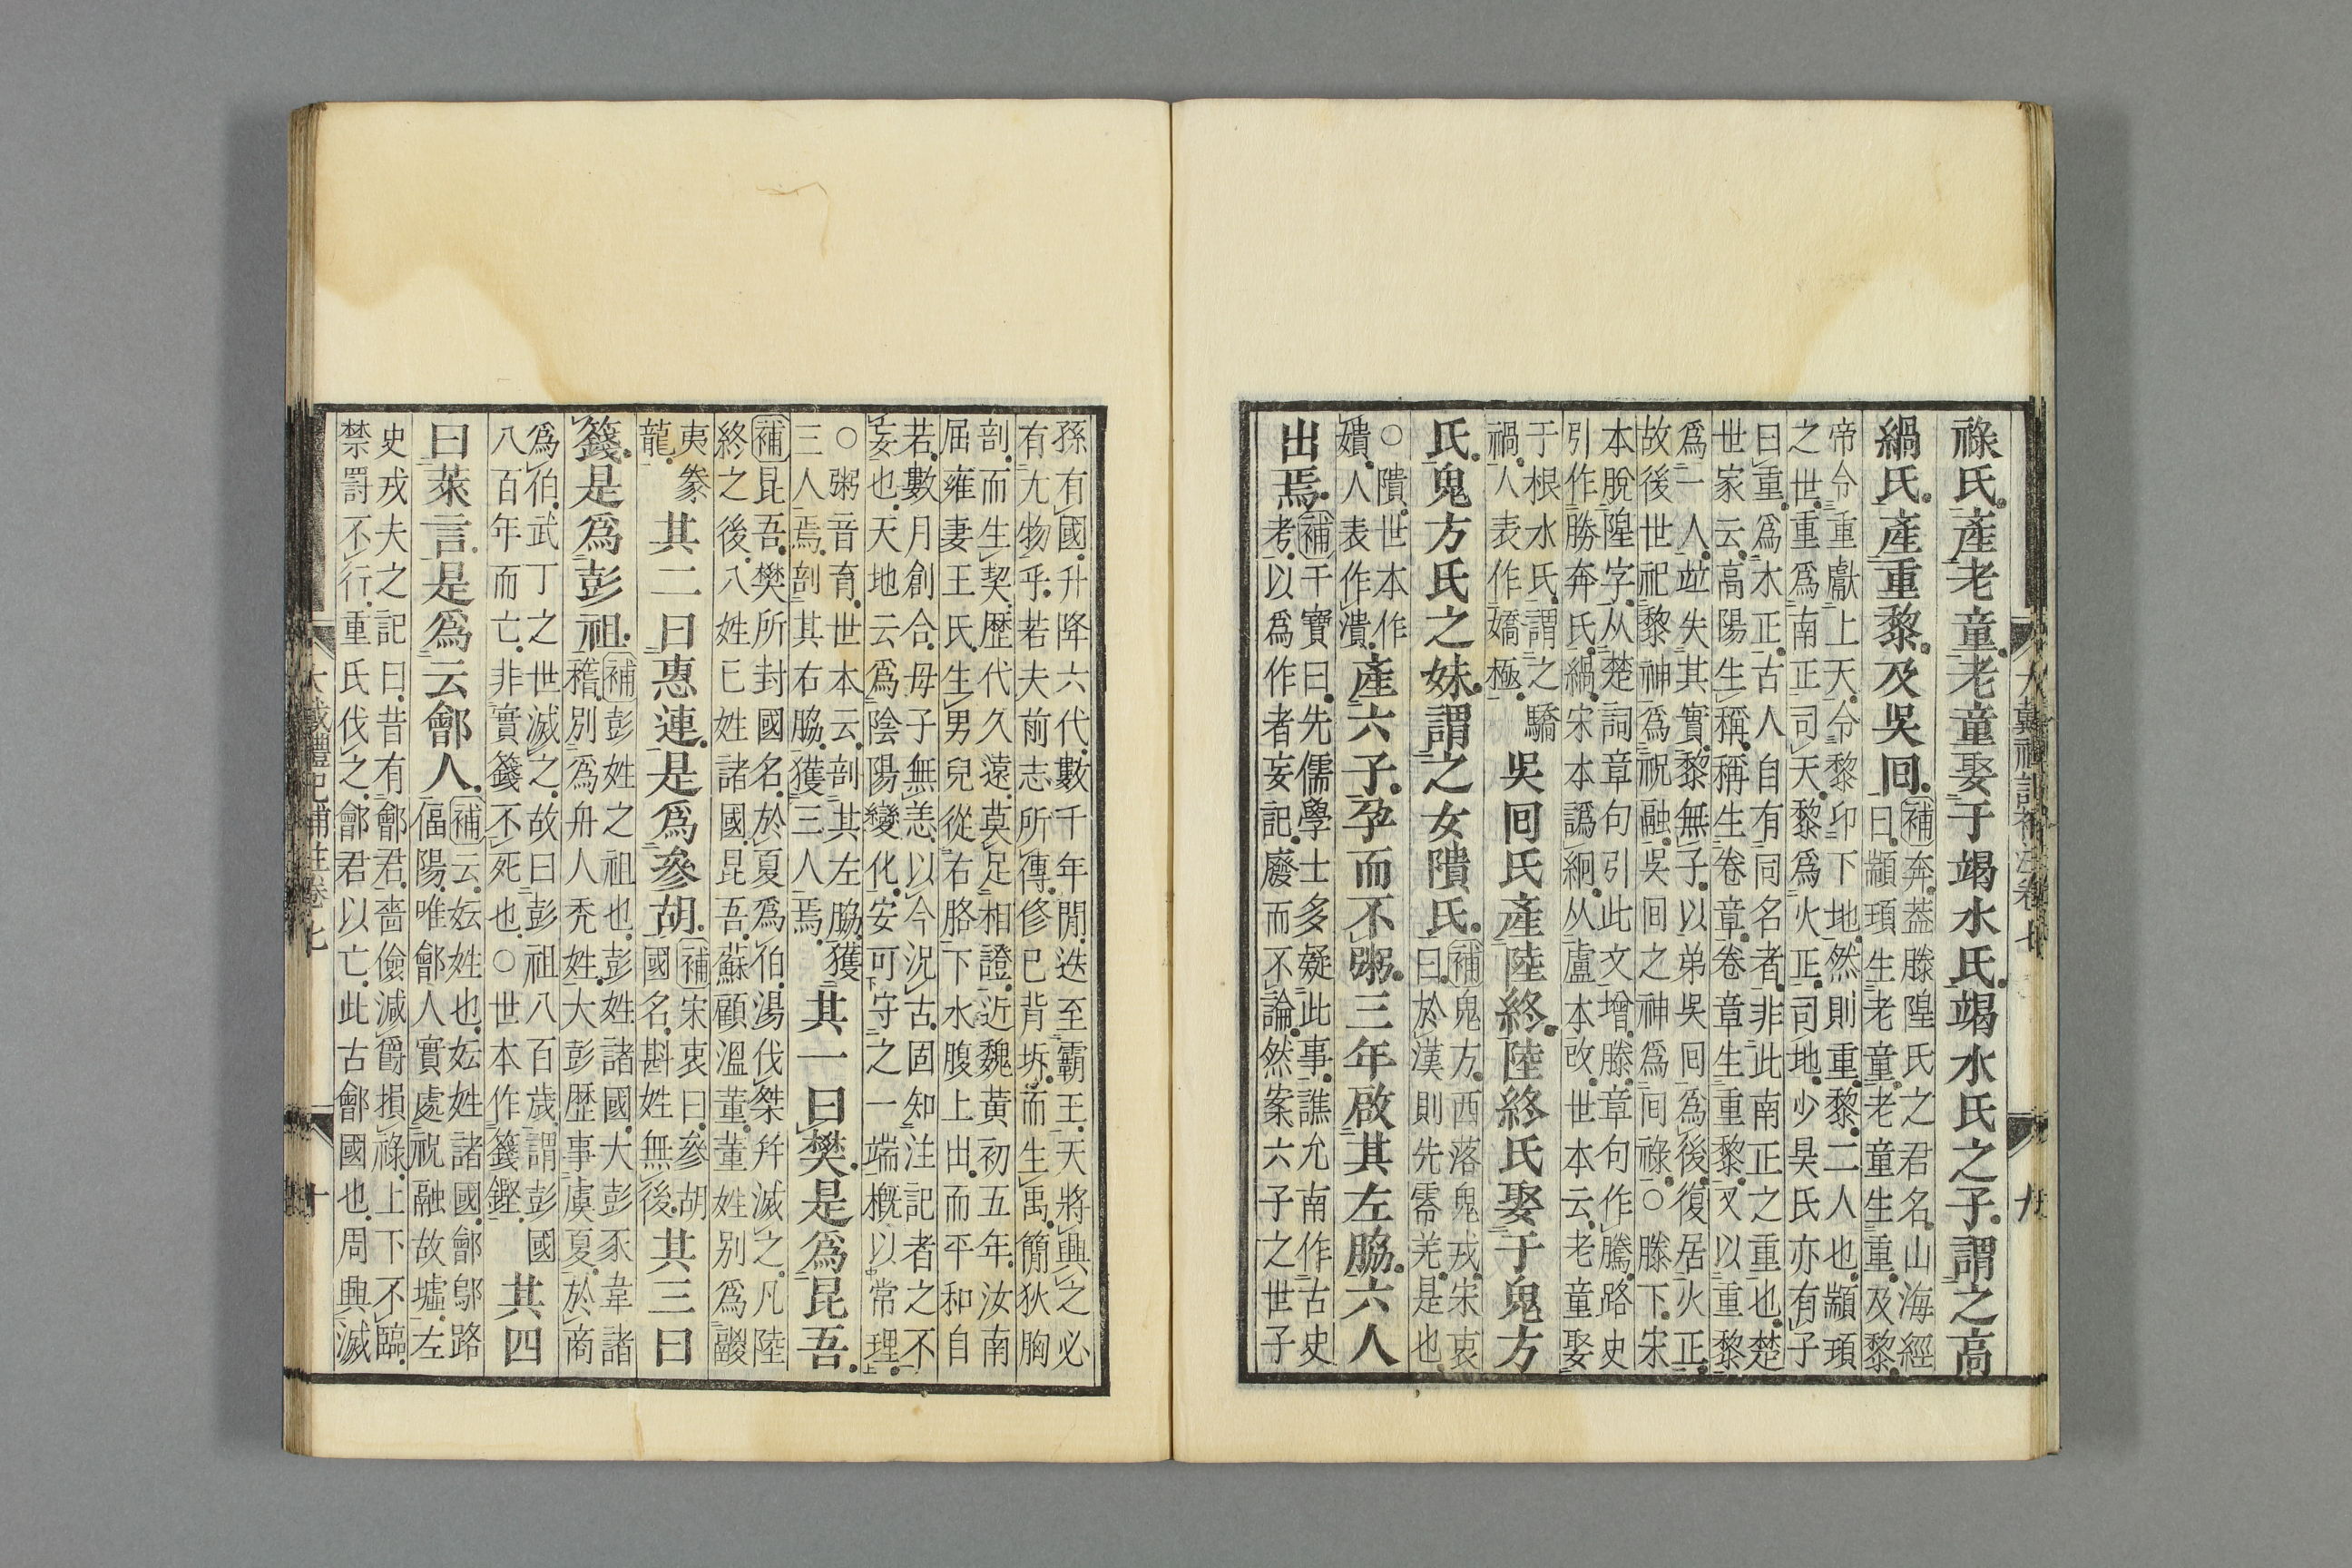 大戴禮記補注卷七 九
祿氏產老童老童娶于竭水氏竭水氏之子謂之高
緺氏產重黎及吳回補奔葢滕隍氏之君名山海經
曰顓頊生老童老童生重及黎
帝令重獻上天令黎卭下地然則重黎二人也顓頊
之世重爲南正司天黎爲火正司地少昊氏亦有子
曰重爲木正古人自有同名者非此南正之重也楚
世家云高陽生稱稱生卷章卷章生重黎又以重黎
爲一人竝失其實黎無子以弟吳回爲後復居火正
故後世祀黎神爲祝融吳回之神爲回祿○滕下宋
本脫隍字从楚詞章句引此文增滕章句作騰路史
引作勝奔氏緺宋本譌絅从盧本改世本云老童娶
于根水氏謂之驕
禍人表作嬌極吳回氏產陸終陸終氏娶于鬼方
氏鬼方氏之妹謂之女隤氏補鬼方西落鬼戎宋衷
曰於漢則先零羌是也
○隤世本作
嬇人表作潰產六子孕而不粥三年啟其左脇六人
出焉補干寶曰先儒學士多疑此事譙允南作古史
考以爲作者妄記廢而不論然案六子之世子
孫有國升降六代數千年閒迭至霸王天將興之必
有尤物乎若夫前志所傳修已背坼而生禹簡狄胸
剖而生契歷代久遠莫足相證近魏黃初五年汝南
屈雍妻王氏生男兒從右胳下水腹上出而平和自
若數月創合母子無恙以今況古固知注記者之不
妄也天地云爲陰陽變化安可守之一端概以常理
○粥音育世本云剖其左脇獲
三人焉剖其右脇獲三人焉其一曰樊是爲昆吾
補昆吾樊所封國名於夏爲伯湯伐桀幷滅之凡陸
終之後八姓已姓諸國昆吾蘇顧溫董董姓別爲鬷
夷豢
龍其二曰惠連是爲參胡補宋衷曰參胡
國名斟姓無後其三曰
籛是爲彭祖補彭姓之祖也彭姓諸國大彭豕韋諸
稽別爲舟人禿姓大彭歷事虞夏於商
爲伯武丁之世滅之故曰彭祖八百歲謂彭國
八百年而亡非實籛不死也○世本作籛鏗其四
曰萊言是爲云鄶人補云妘姓也妘姓諸國鄶鄔路
偪陽唯鄶人實處祝融故墟左
史戎夫之記曰昔有鄶君嗇儉減爵損祿上下不臨
禁罰不行重氏伐之鄶君以亡此古鄶國也周興滅
大戴禮記補注卷七 十